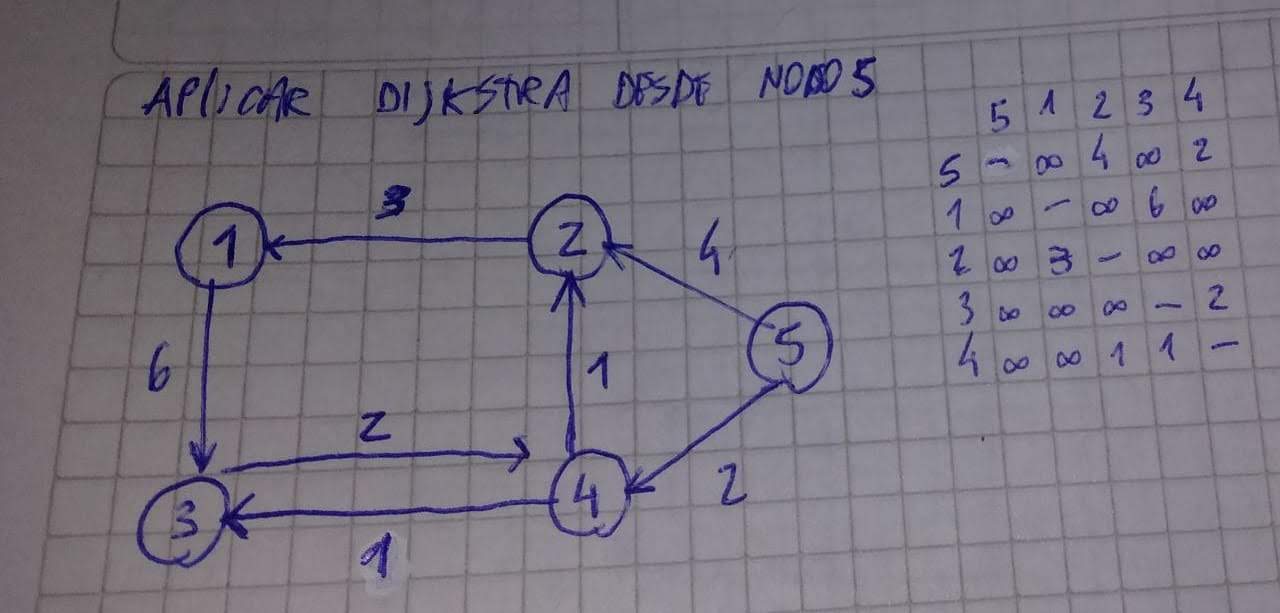 APLICAR DIJKSTRA DESDE NODO 5
3
1
2
4
5
6
1
2
2
3
4
1
5 1 2 3 4
5 - ∞ 4 ∞ 2
1 ∞ - ∞ 6 ∞
2 ∞ 3 - ∞ ∞
3 ∞ ∞ ∞ - 2
4 ∞ ∞ 1 1 -